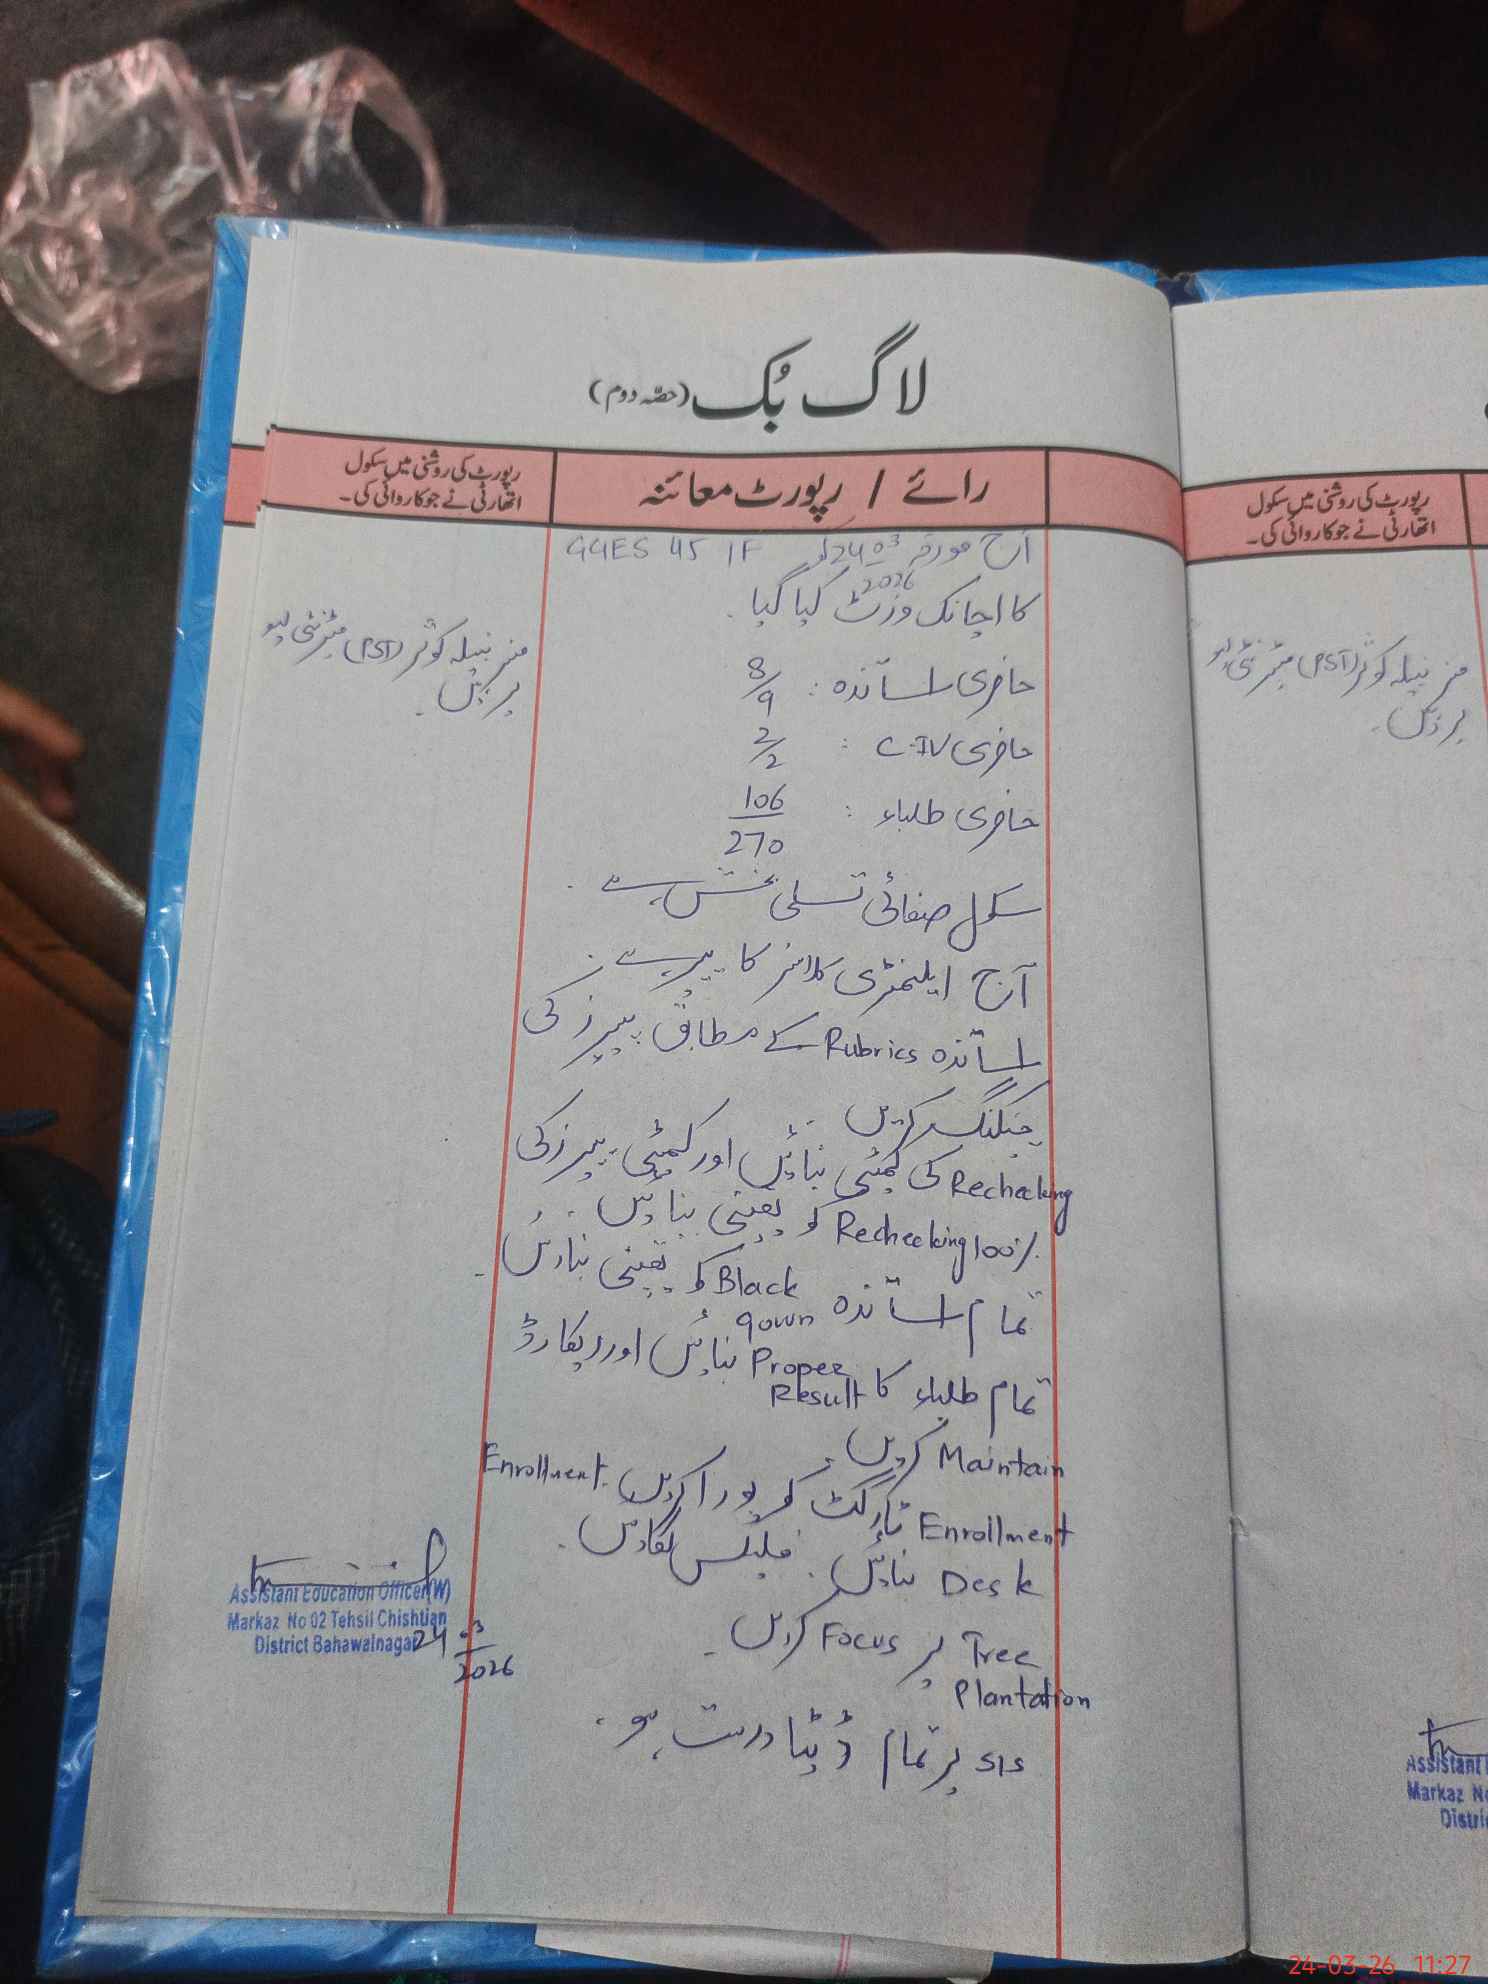 لاگ بُک (حصّہ دوم)
رائے / رپورٹ معائنہ
رپورٹ کی روشنی میں سکول
اتھارٹی نے جو کاروائی کی۔
آج مورخہ 24-03-2026 کو GGES 45 1F
کا اچانک وزٹ کیا گیا۔
حاضری اساتذہ : 8/9
حاضری C-IV : 2/2
حاضری طلباء : 106/270
سکول صفائی تسلی بخش ہے۔
آج ایلیمنٹری کلاسز کا پیپر ہے۔
اساتذہ Rubrics کے مطابق پیپرز کی
چیکنگ کریں۔
Rechecking کی کمیٹی بنائیں اور کمیٹی پیپرز کی
100% Rechecking کو یقینی بنائیں۔
تمام اساتذہ Black gown کو یقینی بنائیں۔
تمام طلباء کا Proper Result بنائیں اور ریکارڈ
Maintain کریں۔
Enrollment ٹارگٹ کو پورا کریں۔ Enrollment
Desk بنائیں۔ فلیکس لگائیں۔
Tree Plantation پر Focus کریں۔
SIS پر تمام ڈیٹا درست ہو۔
مسز نبیلہ کوثر (PST) میٹرنٹی لیو
پر ہیں۔
Assistant Education Officer(W)
Markaz No 02 Tehsil Chishtian
District Bahawalnagar
24-03-2026
رپورٹ کی روشنی میں سکول
اتھارٹی نے جو کاروائی کی۔
مسز نبیلہ کوثر (PST) میٹرنٹی لیو
Assistant
Markaz No
Distri
24-03-26 11:27